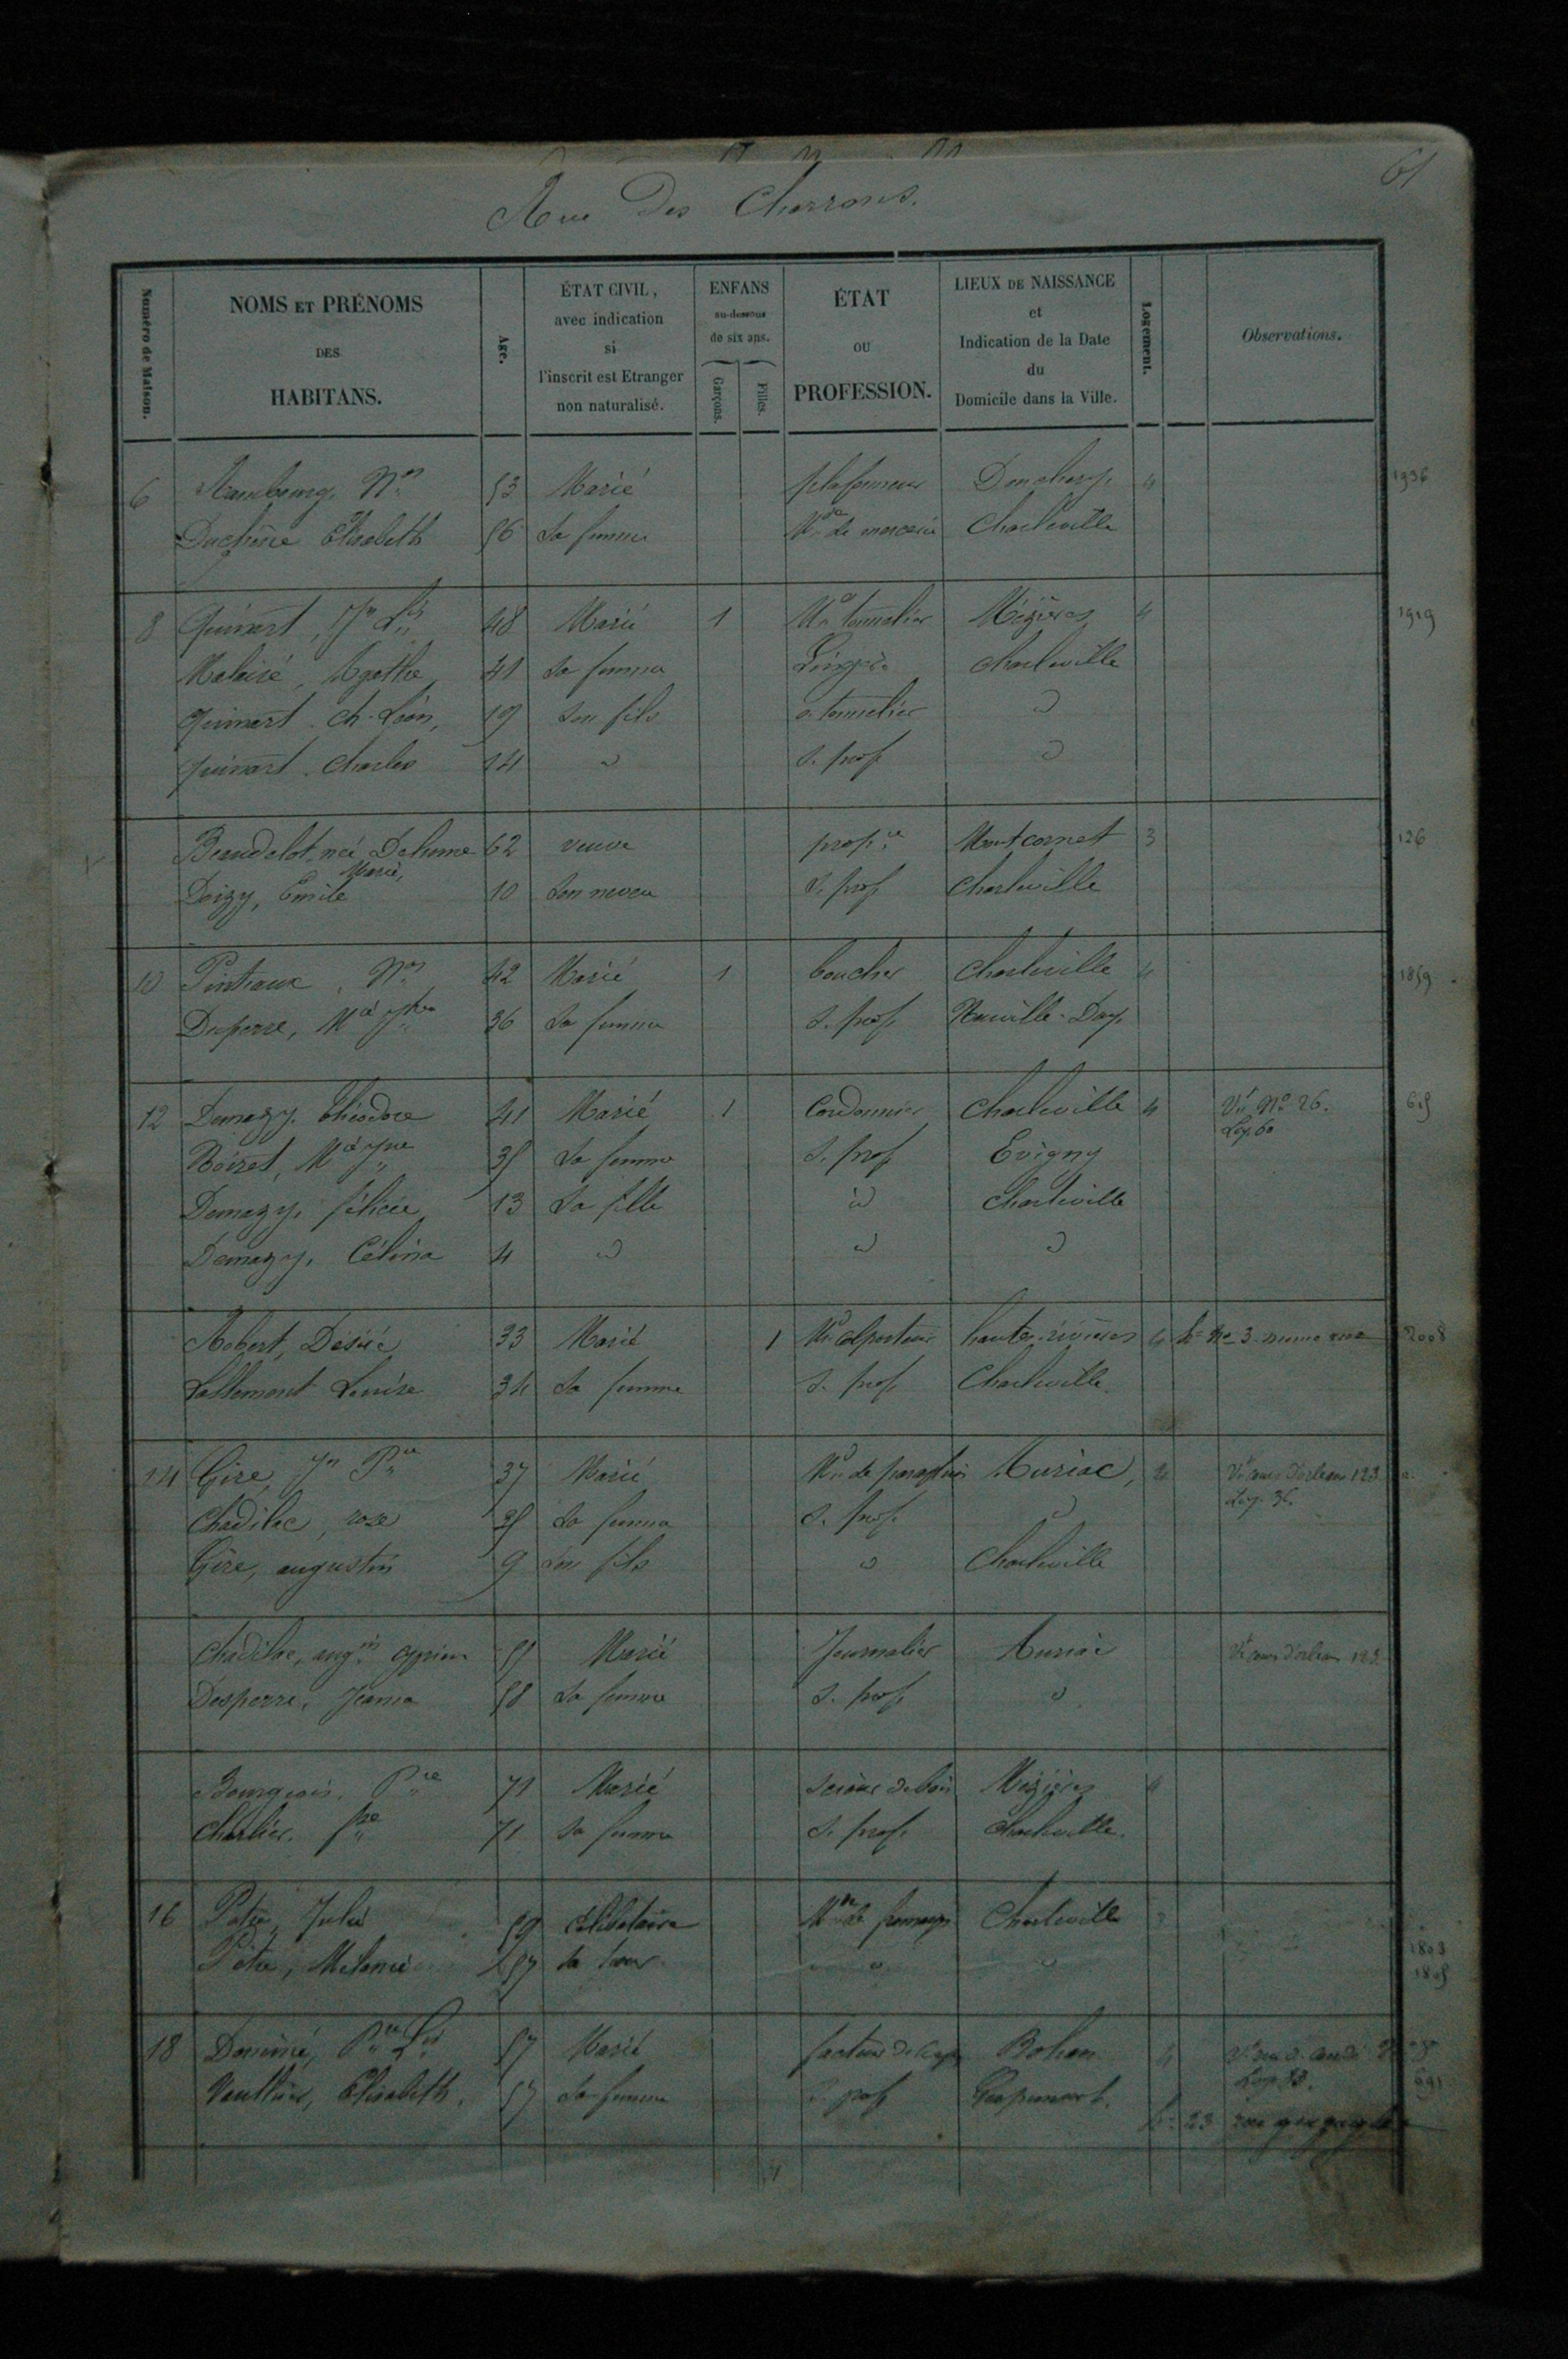 61
Rue Des Charrons.
Numéro de Maison.
NOMS ET PRÉNOMS
DES
HABITANS.
Age.
ÉTAT CIVIL,
avec indication
si
l'inscrit est Etranger
non naturalisé.
ENFANS
au-dessous
de six ans.
Garçons.
Filles.
ÉTAT
OU
PROFESSION.
LIEUX DE NAISSANCE
et
Indication de la Date
du
Domicile dans la Ville.
Logement.
Observations.
6 Nas 53 Marié plafonneur Donchery 4 1936
Duchêne Elisabeth 56 Sa femme Mde de mercerie Charleville
8 Guinart, Jn Ls 48 Marié 1 Md tonnelier Mézières 4 1919
Malaisé, Agathe 41 Sa femme Lingère Charleville
Guinart Ch. Léon, 19 Son fils o. tonnelier d
Guinart Charles 14 d S. prof d
Beaudelot, née Delume 62 veuve propre Montcornet 3 126
Marie,
Doizy, Emile 10 Son neveu S. prof Charleville
10 Pintiaux, Nas 42 Marié 1 boucher Charleville 4 1859
Desperre, Mie 36 Sa femme S. prof. Neuville-Day.
12 Demazy, Théodore 41 Marié 1 Cordonnier Charleville 4 Vr No 26. 615
Log. 60
Boizet, Mie Jne 35 Sa femme S. prof Evigny
Demazy, félicie 13 Sa fille id Charleville
Demazy, Célina 4 id id d
Robert, Désiré 33 Marié 1 Md colporteur hautes-rivières 4 No 3 même rue 2008
Lallemant Louise 34 Sa femme S. prof. Charleville
14 Gire, Jn Pre 37 Marié Md de parapluies Auriac, 2 Vr cours d'orléans 123
Log. 36.
Chadilac, rose 35 Sa femme S. prof. d
Gire, augustin 9 Son fils d Charleville
Chadilac, augin cyprien 55 Marié Journalier Auriac Vr cours d'orléans 123.
Desperre, Jeanne 58 Sa femme S. prof. d
Bourgeois, Pre 71 Marié Scieur de bois Mézières 4
Charlier, fse 71 Sa femme S. prof. Charleville.
16 Pétré, Julie 59 Célibataire Mde de fromages Charleville 1803
Pétré, Mélanie 57 Sa soeur d d 1805
18 Pre Ls 57 Marié facteur de Bohan 4
Vauthier, Elisabeth. 57 Sa femme S. prof Gespunsart. 691
23 rue